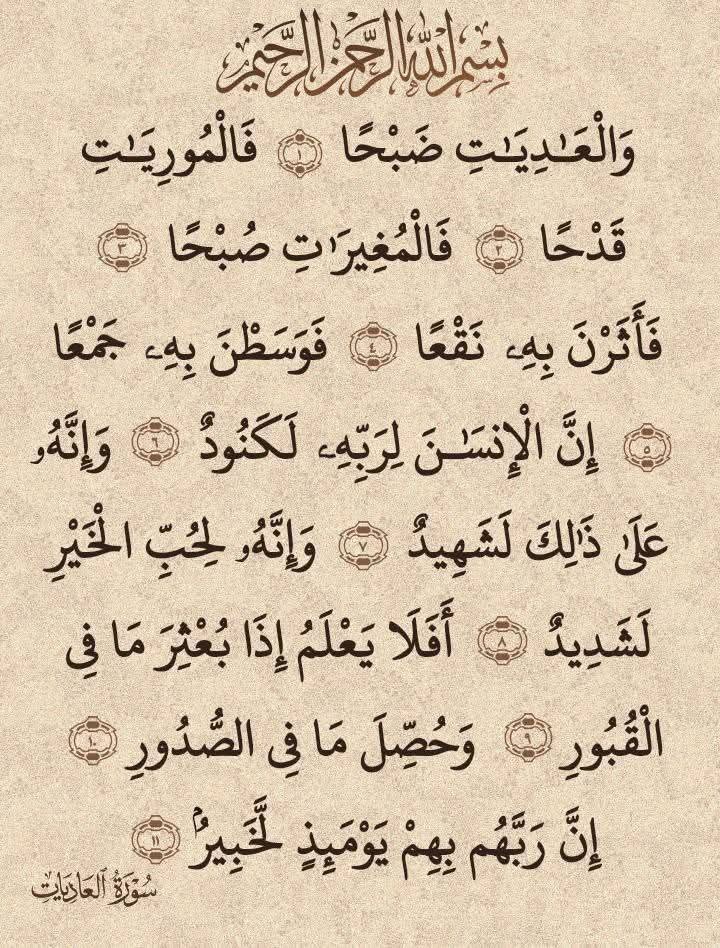 بِسْمِ اللَّهِ الرَّحْمَٰنِ الرَّحِيمِ
وَالْعَـٰدِيَـٰتِ ضَبْحًا ١ فَالْمُورِيَـٰتِ
قَدْحًا ٢ فَالْمُغِيرَٰتِ صُبْحًا ٣
فَأَثَرْنَ بِهِۦ نَقْعًا ٤ فَوَسَطْنَ بِهِۦ جَمْعًا
٥ إِنَّ الْإِنسَـٰنَ لِرَبِّهِۦ لَكَنُودٌ ٦ وَإِنَّهُۥ
عَلَىٰ ذَٰلِكَ لَشَهِيدٌ ٧ وَإِنَّهُۥ لِحُبِّ الْخَيْرِ
لَشَدِيدٌ ٨ أَفَلَا يَعْلَمُ إِذَا بُعْثِرَ مَا فِى
الْقُبُورِ ٩ وَحُصِّلَ مَا فِى الصُّدُورِ ١٠
إِنَّ رَبَّهُم بِهِمْ يَوْمَئِذٍ لَّخَبِيرٌۢ ١١
سُوْرَةُ ٱلعَادِيَاتِ